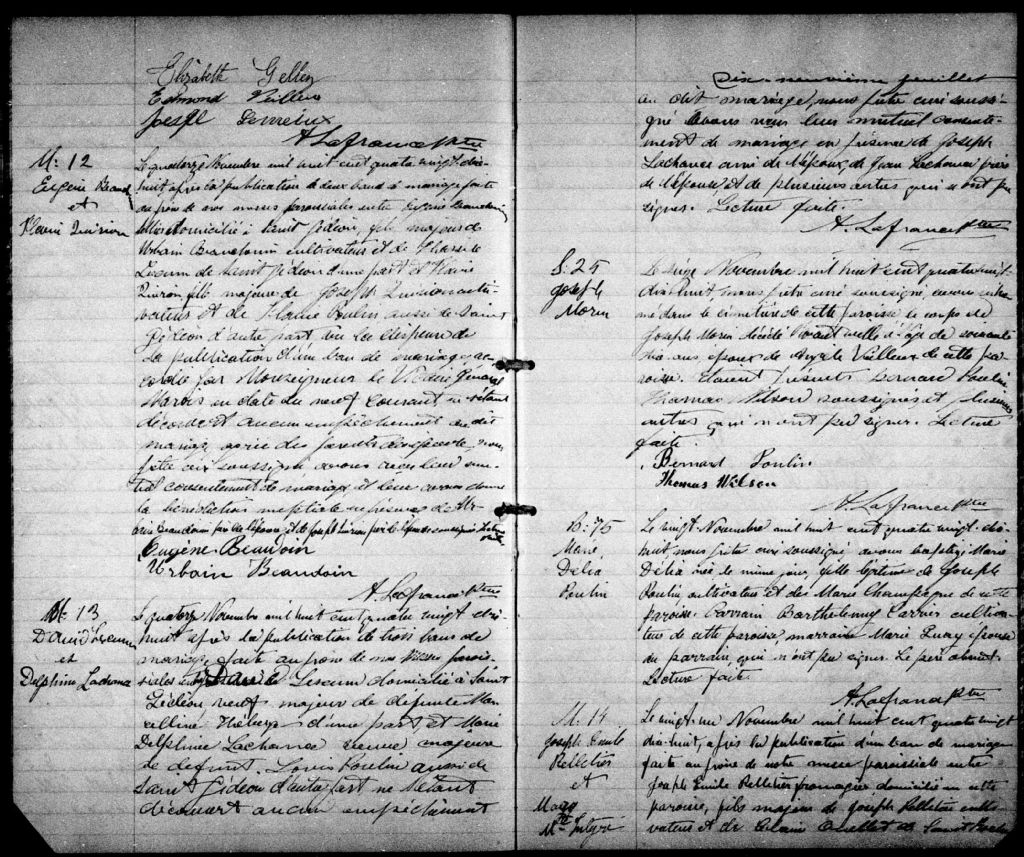 Elizabeth Gelley
Edmond Veilleux
Joseph
A. Lafrance ptre
M: 12
Eugène Beaud
et
Le quatorze Novembre mil huit cent quatre vingt dix-
huit après la publication de deux bans de mariage faite
au prône de nos messes paroissiales entre Eugène Beaudoin
domicilié à Saint Gédéon, fils majeur de
Urbain Beaudoin cultivateur et de
de Saint Gédéon d'une part et
fille majeure de Joseph
et de Poulin aussi de Saint
Gédéon d'autre part vu la dispense de
la publication d'un ban de mariage ac-
cordée par Monseigneur le Vicaire Général
Marois en date du neuf courant ne s'étant
découvert aucun empêchement au dit
mariage, avis des parents nous
prêtre curé soussigné avons reçu leur mu-
tuel consentement de mariage, et leur avons donné
la bénédiction nuptiale en présence de Ur-
bain Beaudoin père de l'époux, et de Joseph père de l'épouse soussignés. Lecture faite
Eugène Beaudoin
Urbain Beaudoin
A. Lafrance ptre
M. 13
David Lessum
et
Delphine Lachance
Le quatorze Novembre mil huit cent quatre vingt dix-
huit après la publication de trois bans de
mariage, faite au prône de nos messes parois-
siales entre David Lessum domicilié à Saint
Gédéon veuf majeur de défunte Mar-
celline d'une part et Marie
Delphine Lachance veuve majeure
de défunt Louis Poulin aussi de
Saint Gédéon d'autre part ne s'étant
découvert aucun empêchement
Dix-neuvième feuillet
au dit mariage, nous prêtre curé soussi-
gné avons reçu leur mutuel consente-
ment de mariage en présence de Joseph
Lachance ami de l'époux, de Jean Lachance frère
de l'épouse et de plusieurs autres qui n'ont pu
signer. Lecture faite.
A. Lafrance ptre
S: 25
Joseph
Morin
Le seize Novembre mil huit cent quatre vingt-
dix-huit, nous prêtre curé soussigné avons inhu-
mé dans le cimetière de cette paroisse le corps de
Joseph Morin décédé l'avant veille à l'âge de soixante
dix ans époux de Angèle Veilleux de cette pa-
roisse. Étaient présents Bernard Poulin
Thomas Wilson soussignés et plusieurs
autres qui n'ont pu signer. Lecture
faite.
Bernard Poulin
Thomas Wilson
A. Lafrance ptre
B: 75
Marie
Délia
Poulin
Le vingt Novembre mil huit cent quatre vingt-dix-
huit nous prêtre curé soussigné avons baptisé Marie
Délia née le même jour, fille légitime de Joseph
Poulin cultivateur et de Marie Champagne de cette
paroisse. Parrain Barthelemy cultiva-
teur de cette paroisse, marraine Marie épouse
du parrain, qui n'ont pu signer. Le père absent.
Lecture faite.
A. Lafrance ptre
M: 14
Joseph Emile
Pelletier
et
Mary
Le vingt un Novembre mil huit cent quatre vingt
dix-huit, après la publication d'un ban de mariage
faite au prône de notre messe paroissiale entre
Joseph Emile Pelletier fromager domicilié en cette
paroisse, fils majeur de Joseph Pelletier culti-
vateur et de Ouellet de Saint